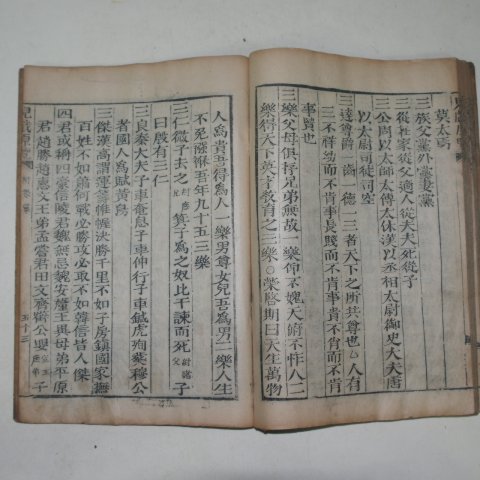 莫太焉
三族父黨母黨妻黨
三從在家從父適人從夫夫死從子
三公周以太師太傅太保漢以丞相太尉御史大夫唐
以太尉司徒司空
三達尊爵一齒一德一三者天下之所共尊也人有
三不祥幼而不肯事長賤而不肯事貴不肖而不肯
事賢也
三樂父母俱存兄弟無故一樂仰不愧天俯不怍人二
樂得天下英才教育之三樂○榮啓期曰天生萬物
人爲貴吾得爲人一樂男尊女卑吾爲男二樂人生
不免襁褓吾年九十五三樂
三仁微子去之 箕子爲之奴比干諫而死 子
曰殷有三仁
三良秦大夫子車奄息子車仲行子車鍼虎殉葬穆公
者國人爲賦黃鳥
三傑漢高謂運籌帷幄決勝千里不如子房鎭國家撫
百姓不如蕭何戰必勝攻必取不如韓信皆人傑
四君或稱四豪信陵君魏無忌魏安釐王異母弟平原
君趙勝趙惠文王弟孟嘗君田文齊 公 子
五十三